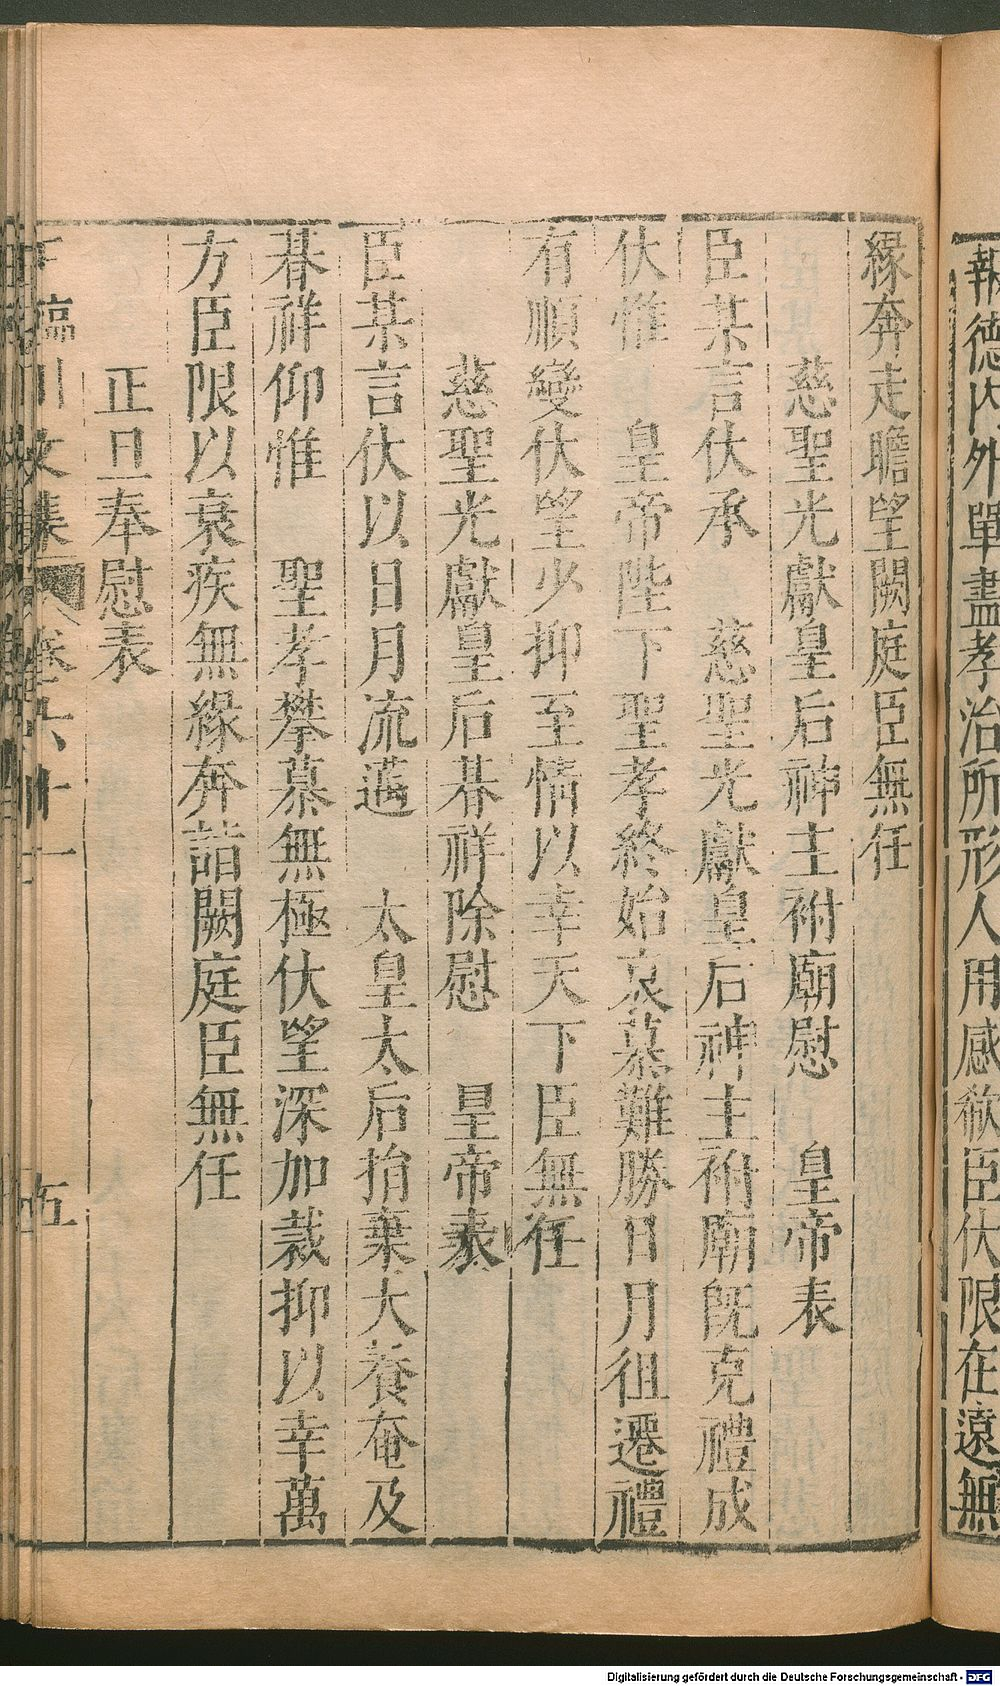 報德内外單盡孝治所形人用感欷臣伏限在遠無
緣奔走瞻望闕庭臣無任
慈聖光獻皇后神主祔廟慰　皇帝表
臣某言伏承　慈聖光獻皇后神主祔廟旣克禮成
伏惟　皇帝陛下聖孝終始哀慕難勝日月徂遷禮
有順變伏望少抑至情以幸天下臣無任
慈聖光獻皇后朞祥除慰　皇帝表
臣某言伏以日月流邁　太皇太后捐棄大養奄及
朞祥仰惟　聖孝攀慕無極伏望深加裁抑以幸萬
方臣限以衰疾無緣奔詣闕庭臣無任
正旦奉慰表
臨川文集　卷六十一　五
Digitalisierung gefördert durch die Deutsche Forschungsgemeinschaft - DFG